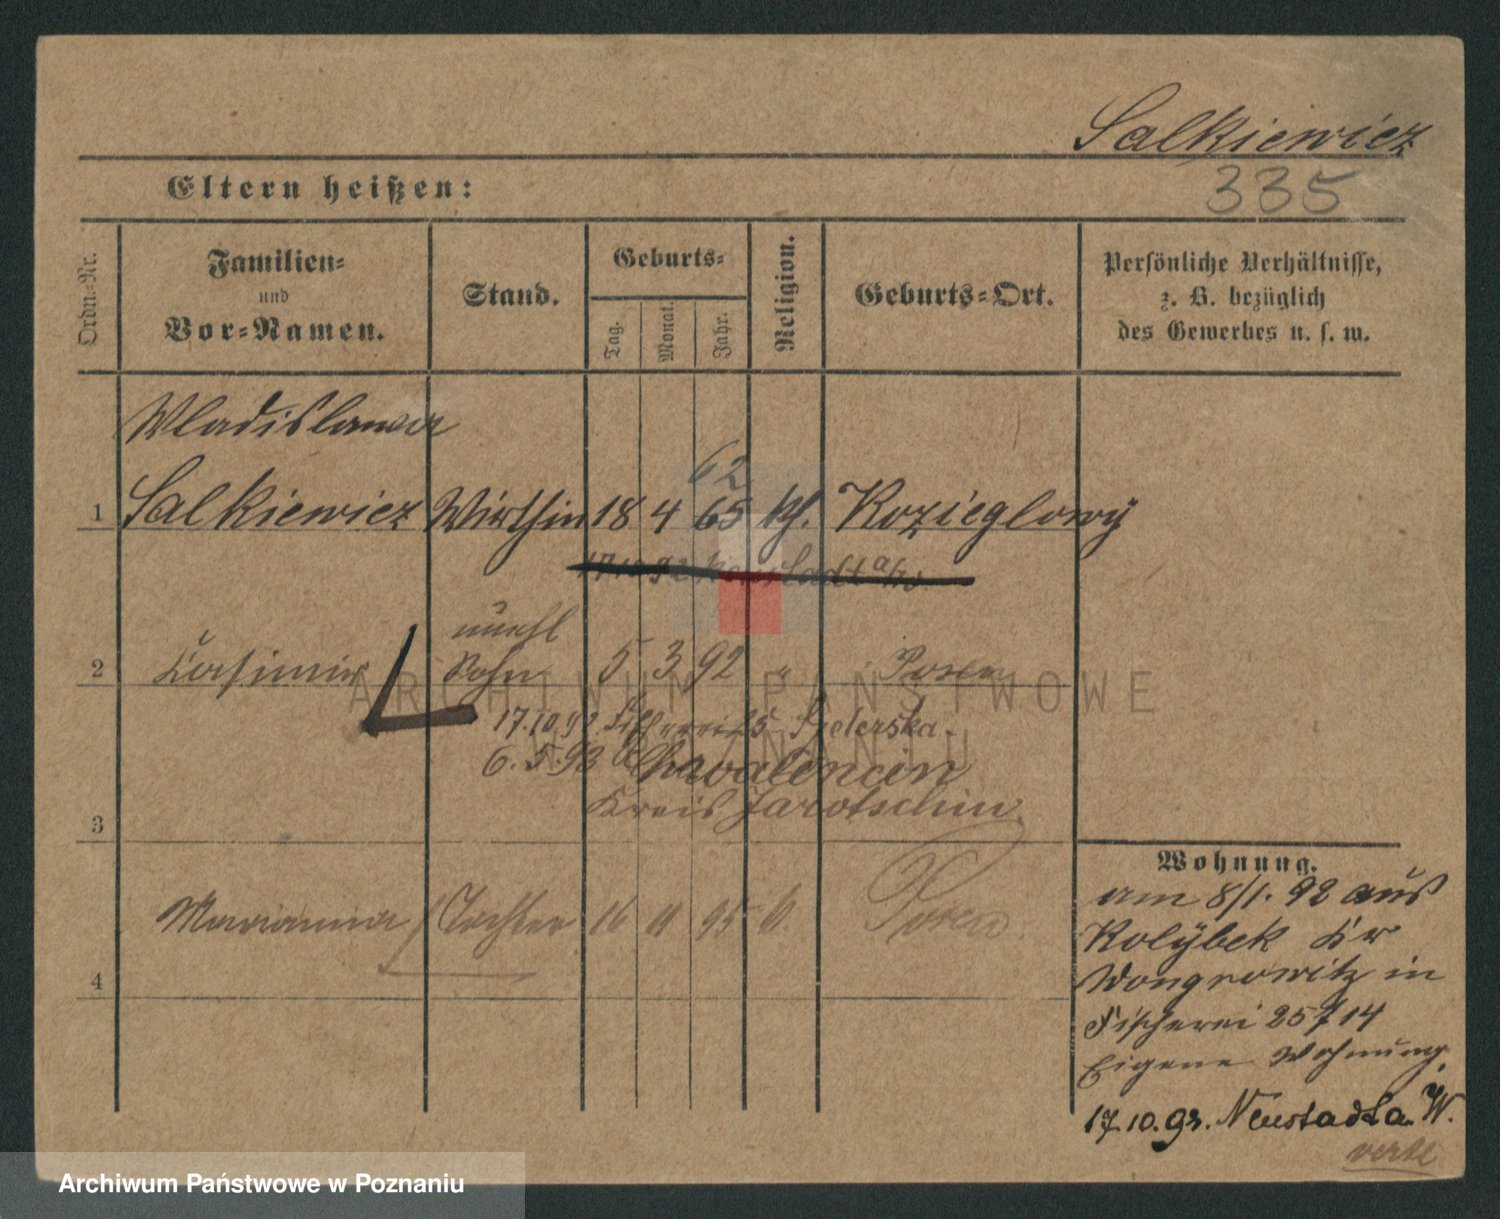 Salkiewicz
335
Eltern heißen:
Ordn.-Nr.
Familien-
und
Vor-Namen.
Stand.
Geburts-
Tag.
Monat.
Jahr.
Religion.
Geburts-Ort.
Persönliche Verhältnisse,
z. B. bezüglich
des Gewerbes u. s. w.
Wladislawa
62
1 Salkiewicz Wirthin 18 4 65 kth. Kozieglowy
17.10.92 Neustadt a/W.
unehl
2 Casimir Sohn 5 3 92 " Posen
17.10.92. Fischerei 25
6.5.93 Chwalencin
Kreis Jarotschin.
3
Marianna Tochter 16 11 95 k. Posen
4
Wohnung.
am 8/1. 92 aus
Kolybek Kr
Wongrowitz in
Fischerei 25 14
Eigene Wohnung.
17.10.92. Neustadt a. W.
ARCHIWUM PAŃSTWOWE
W POZNANIU
Archiwum Państwowe w Poznaniu